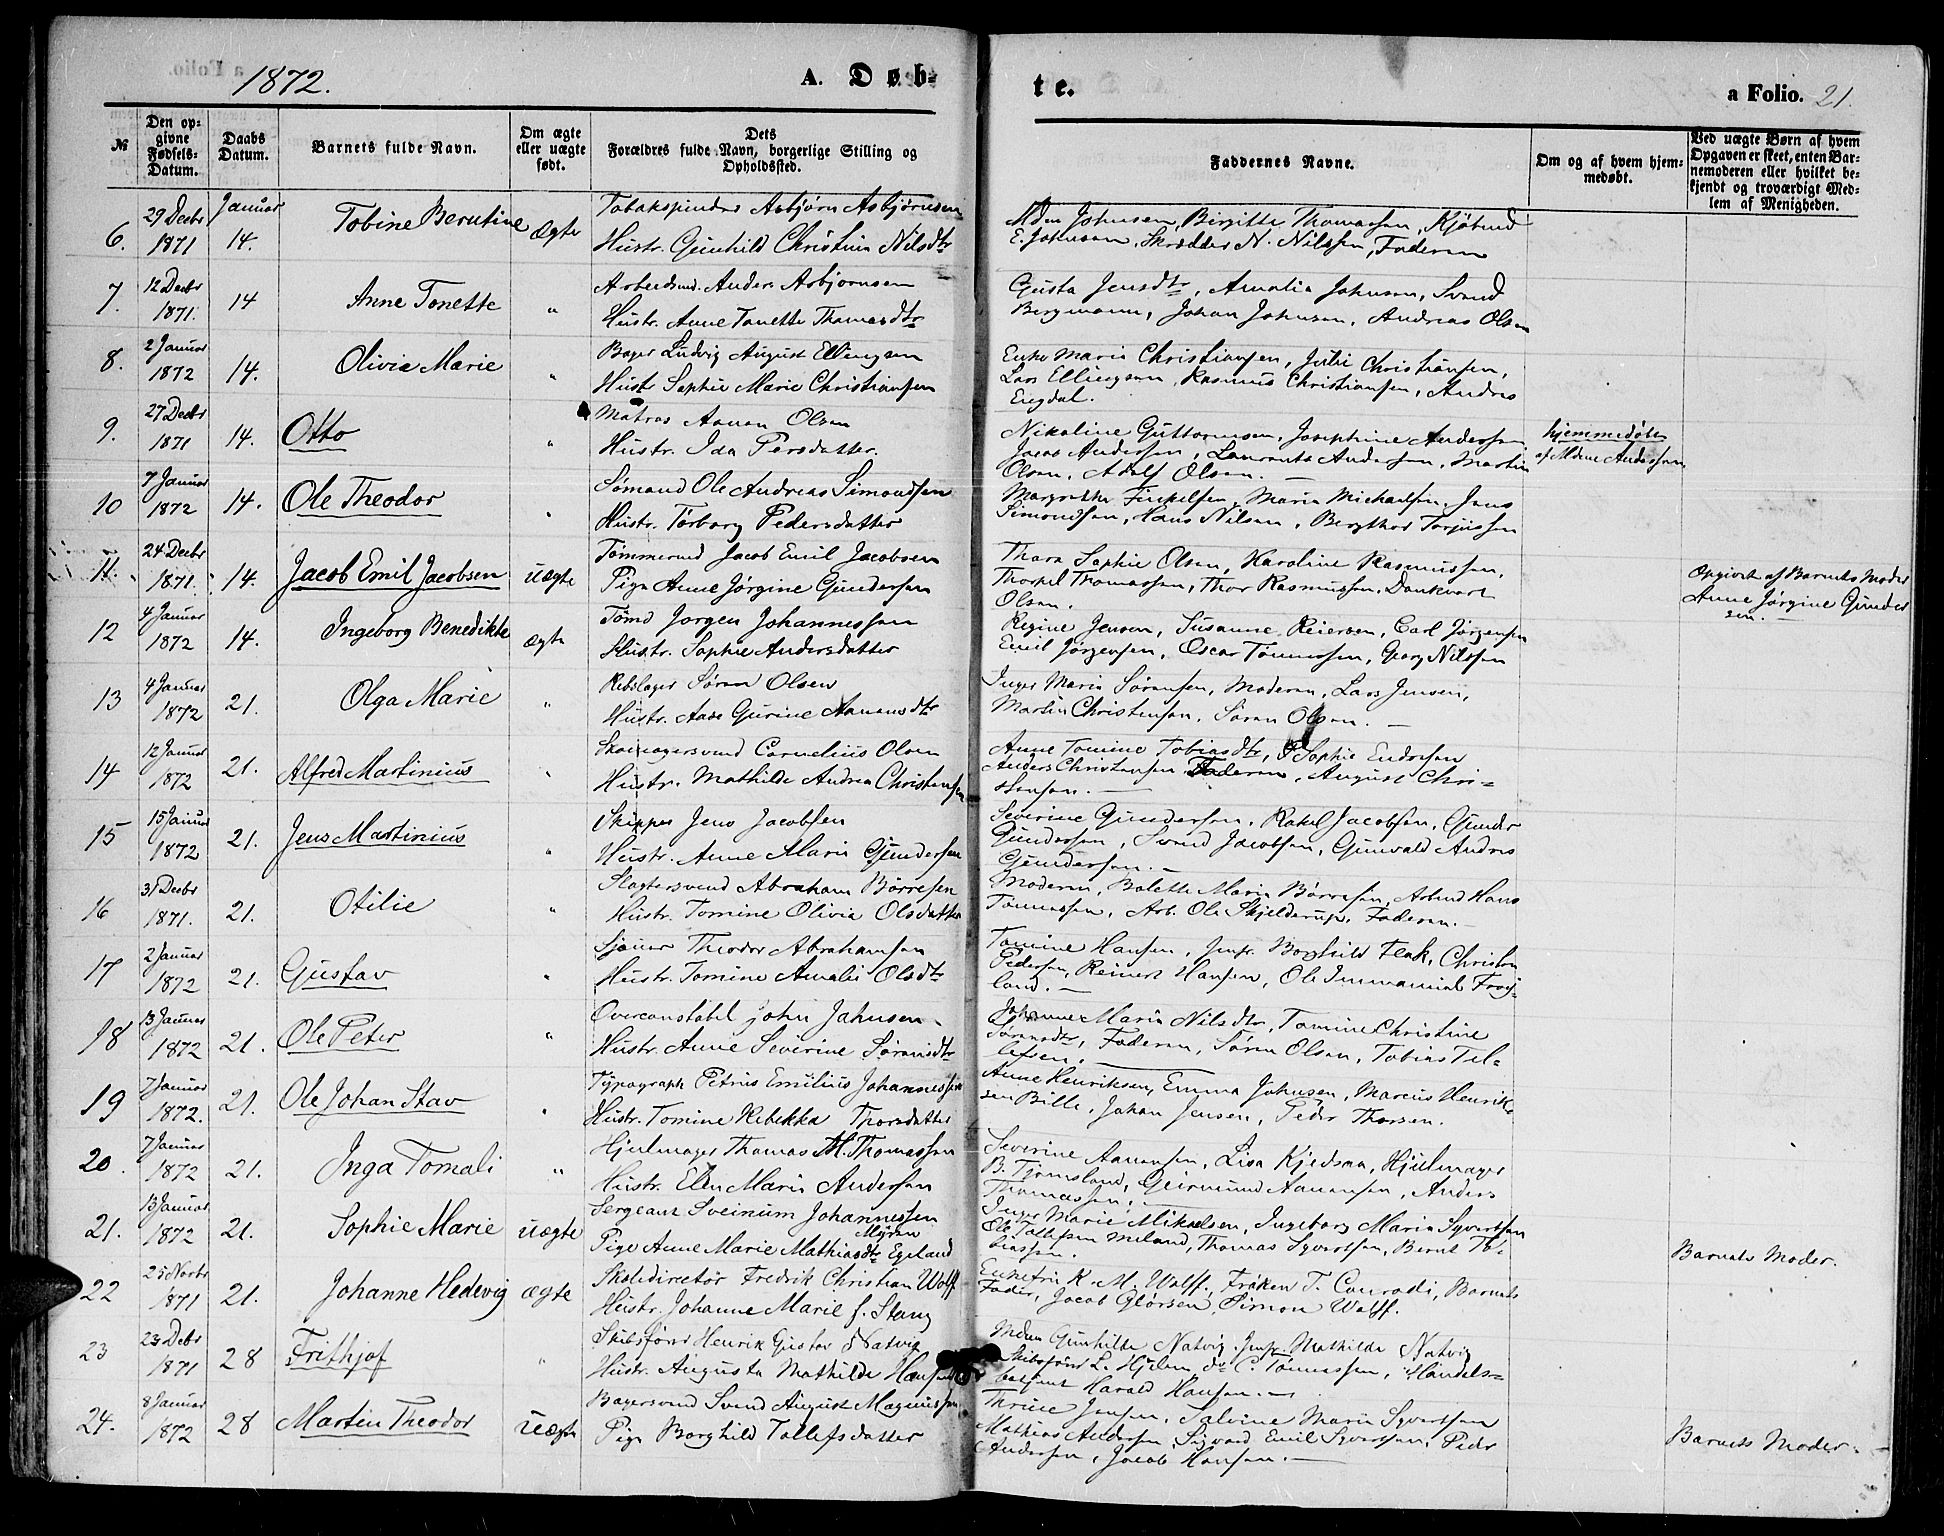 1872.
A. Døb-
te.
a Folio. 21.
№
Den op-
givne
Fødsels-
Datum.
Daabs
Datum.
Barnets fulde Navn.
Om ægte
eller uægte
født.
Dets
Forældres fulde Navn, borgerlige Stilling og
Opholdssted.
Faddernes Navne.
Om og af hvem hjem-
medøbt.
Ved uægte Børn af hvem
Opgaven er skeet, enten Bar-
nemoderen eller hvilket be-
kjendt og troværdigt Med-
lem af Menigheden.
6. 29 Decbr 1871 Januar 14. Tobine Berntine ægte
Tobakspinder Asbjørn Asbjørnsen
Hustr. Gunhild Christine Nilsdtr
Mdm Johnsen, Birgitte Thomassen, Kjøbmd
E. Johnsen, Skrædder N. Nilssen, Faderen
7. 12 Decbr 1871. 14 Anne Tonette "
Arbeidsmd. Anders Asbjørnsen
Hustr. Anne Tonette Thomasdtr
Gusta Jensdtr, Amalia Johnsen, Svend
Bergmann, Johan Johnsen, Andreas Olsen
8. 2 Januar 1872 14. Olivie Marie "
Bager Ludvig August Ellingsen
Hustr Sophie Marie Christiansen
Enke Maria Christiansen, Julie Christiansen,
Lars Ellingsen, Rasmus Christiansen, Andres
Engdal.
9. 27 Decbr 1871 14. Otto "
Matros Aanen Olsen
Hustr. Ida Persdatter.
Nikoline Guttormsen, Josephine Andersen
Jacob Andersen, Laurents Andersen, Martin
Olsen, Adolf Olsen. —
hjemmedøbt
af Mdme Anderssen
10 7 Januar 1872 14. Ole Theodor "
Sømand Ole Andreas Simondsen
Hustr. Torborg Pedersdatter
Margrethe Finkelsen, Maria Michaelsen, Jens
Simondsen, Hans Nilsen, Bergthor Torjussen
11. 24 Decbr 1871. 14. Jacob Emil Jacobsen uægte
Tømmermd Jacob Emil Jacobsen
Pige Anne Jørgine Gundersen
Thara Sophie Olsen, Karoline Rasmussen,
Thorpel Thomassen, Thor Rasmussen, Dankvart
Olsen.
Opgivet af Barnets Moder
Anne Jørgine Gunder
sen. —
12 4 Januar 1872 14. Ingeborg Benedikte ægte
Tømd Jørgen Johannessen
Hustr. Sophie Andersdatter
Regine Jensen, Susanne Reiersen, Carl Jørgensen
Emil Jørgensen, Oscar Tønnessen, Georg Nilssen
13 4 Januar 1872 21. Olga Marie "
Rebslager Søren Olsen
Hustr. Aase Gurine Aanensdtr
Inger Maria Sørensen, Moderen, Lars Jensen,
Martin Christensen, Søren Olsen. —
14 12 Januar 1872 21. Alfred Martinius "
Skomagersvend Cornelius Olsen
Hustr. Mathilde Andrea Christensen
Anne Tomine Tobiasdtr, Sophie Endresen
Anders Christensen, Faderen, August Chri-
stensen. —
15 15 Januar 1872 21. Jens Martinius "
Skipper Jens Jacobsen
Hustr. Anne Maria Gundersen
Severine Gundersen, Rakel Jacobsen, Gunder
Gundersen, Svend Jacobsen, Gunvald Andres
Gundersen. —
16 31 Decbr 1871. 21. Otilie "
Slagtersvend Abraham Børresen
Hustr. Tomine Olivia Olsdatter
Moderen, Balette Maria Børresen, Arbmd Hans
Tønnessen, Arb. Ole Skjelderup, Faderen. —
17 2 Januar 1872 21. Gustav "
Sjouer Theodor Abrahamsen
Hustr. Tomine Amalie Olsdtr
Tomine Hansen, Jmfr. Borghild Flak, Christen
Pedersen, Reinert Hansen, Ole Immanuel Frøy-
land. —
18 13 Januar 1872 21. Ole Peter "
Overconstabel John Johnsen
Hustr. Anne Severine Sørensdtr
Johanne Marie Nilsdtr, Tomine Christine
Sørensdtr, Faderen, Søren Olsen, Tobias Tel-
lefsen. —
19 7 Januar 1872. 21. Ole Johan Stav "
Typograph Petrus Emilius Johannessen
Hustr. Tomine Rebekka Thorsdatter
Anne Henriksen, Emma Johnsen, Marcus Henrik-
sen Bille, Johan Jensen, Peder Thorsen.
20. 7 Januar 1872 21. Inga Tomali "
Hjulmager Thomas M. Thomassen
Hustr. Elen Maria Andersen
Severine Aanensen, Lisa Kjedsma, Hjulmager
B. Tjomsland, Geirmund Aanensen, Anders
Thomassen. —
21. 13 Januar 1872 21. Sophie Marie uægte
Sergeant Sveinum Johannessen
Myren
Pige Anne Marie Mathiasdtr Egeland
Inger Marie Mikaelsen, Ingeborg Maria Syvertsen
Ole Tollefsen Meland, Thomas Syvertsen, Bernt To-
biassen.
Barnets Moder.
22 25 Novbr 1871 21. Johanne Hedevig ægte
Skoledirectør Fredrik Christian Wolff
Hustr. Johanne Marie f. Stang
Enkefru K. M. Wolff, Frøken T. Conradi, Barnets
Fader, Jacob Glørsen, Simon Wolff.
23 23 Decbr 1871 28 Frithjof "
Skibsfører Henrik Gustav Natvig
Hustr. Augusta Mathilde Hansen
Mdm Gunhilde Natvig, Jmfr. Mathilde Natvig
Skibsfører L. Hjelm, do C. Tønnessen, Handels-
betjent Harald Hansen. —
24. 8 Januar 1872 28 Martin Theodor uægte
Bagersvend Svend August Magnussen
Pige Borghild Tollefsdatter
Thrine Jensen, Talvine Marie Syvertsen
Mathias Andersen, Sigvard Emil Syvertsen, Peder
Andersen, Jacob Hansen. —
Barnets Moder. —